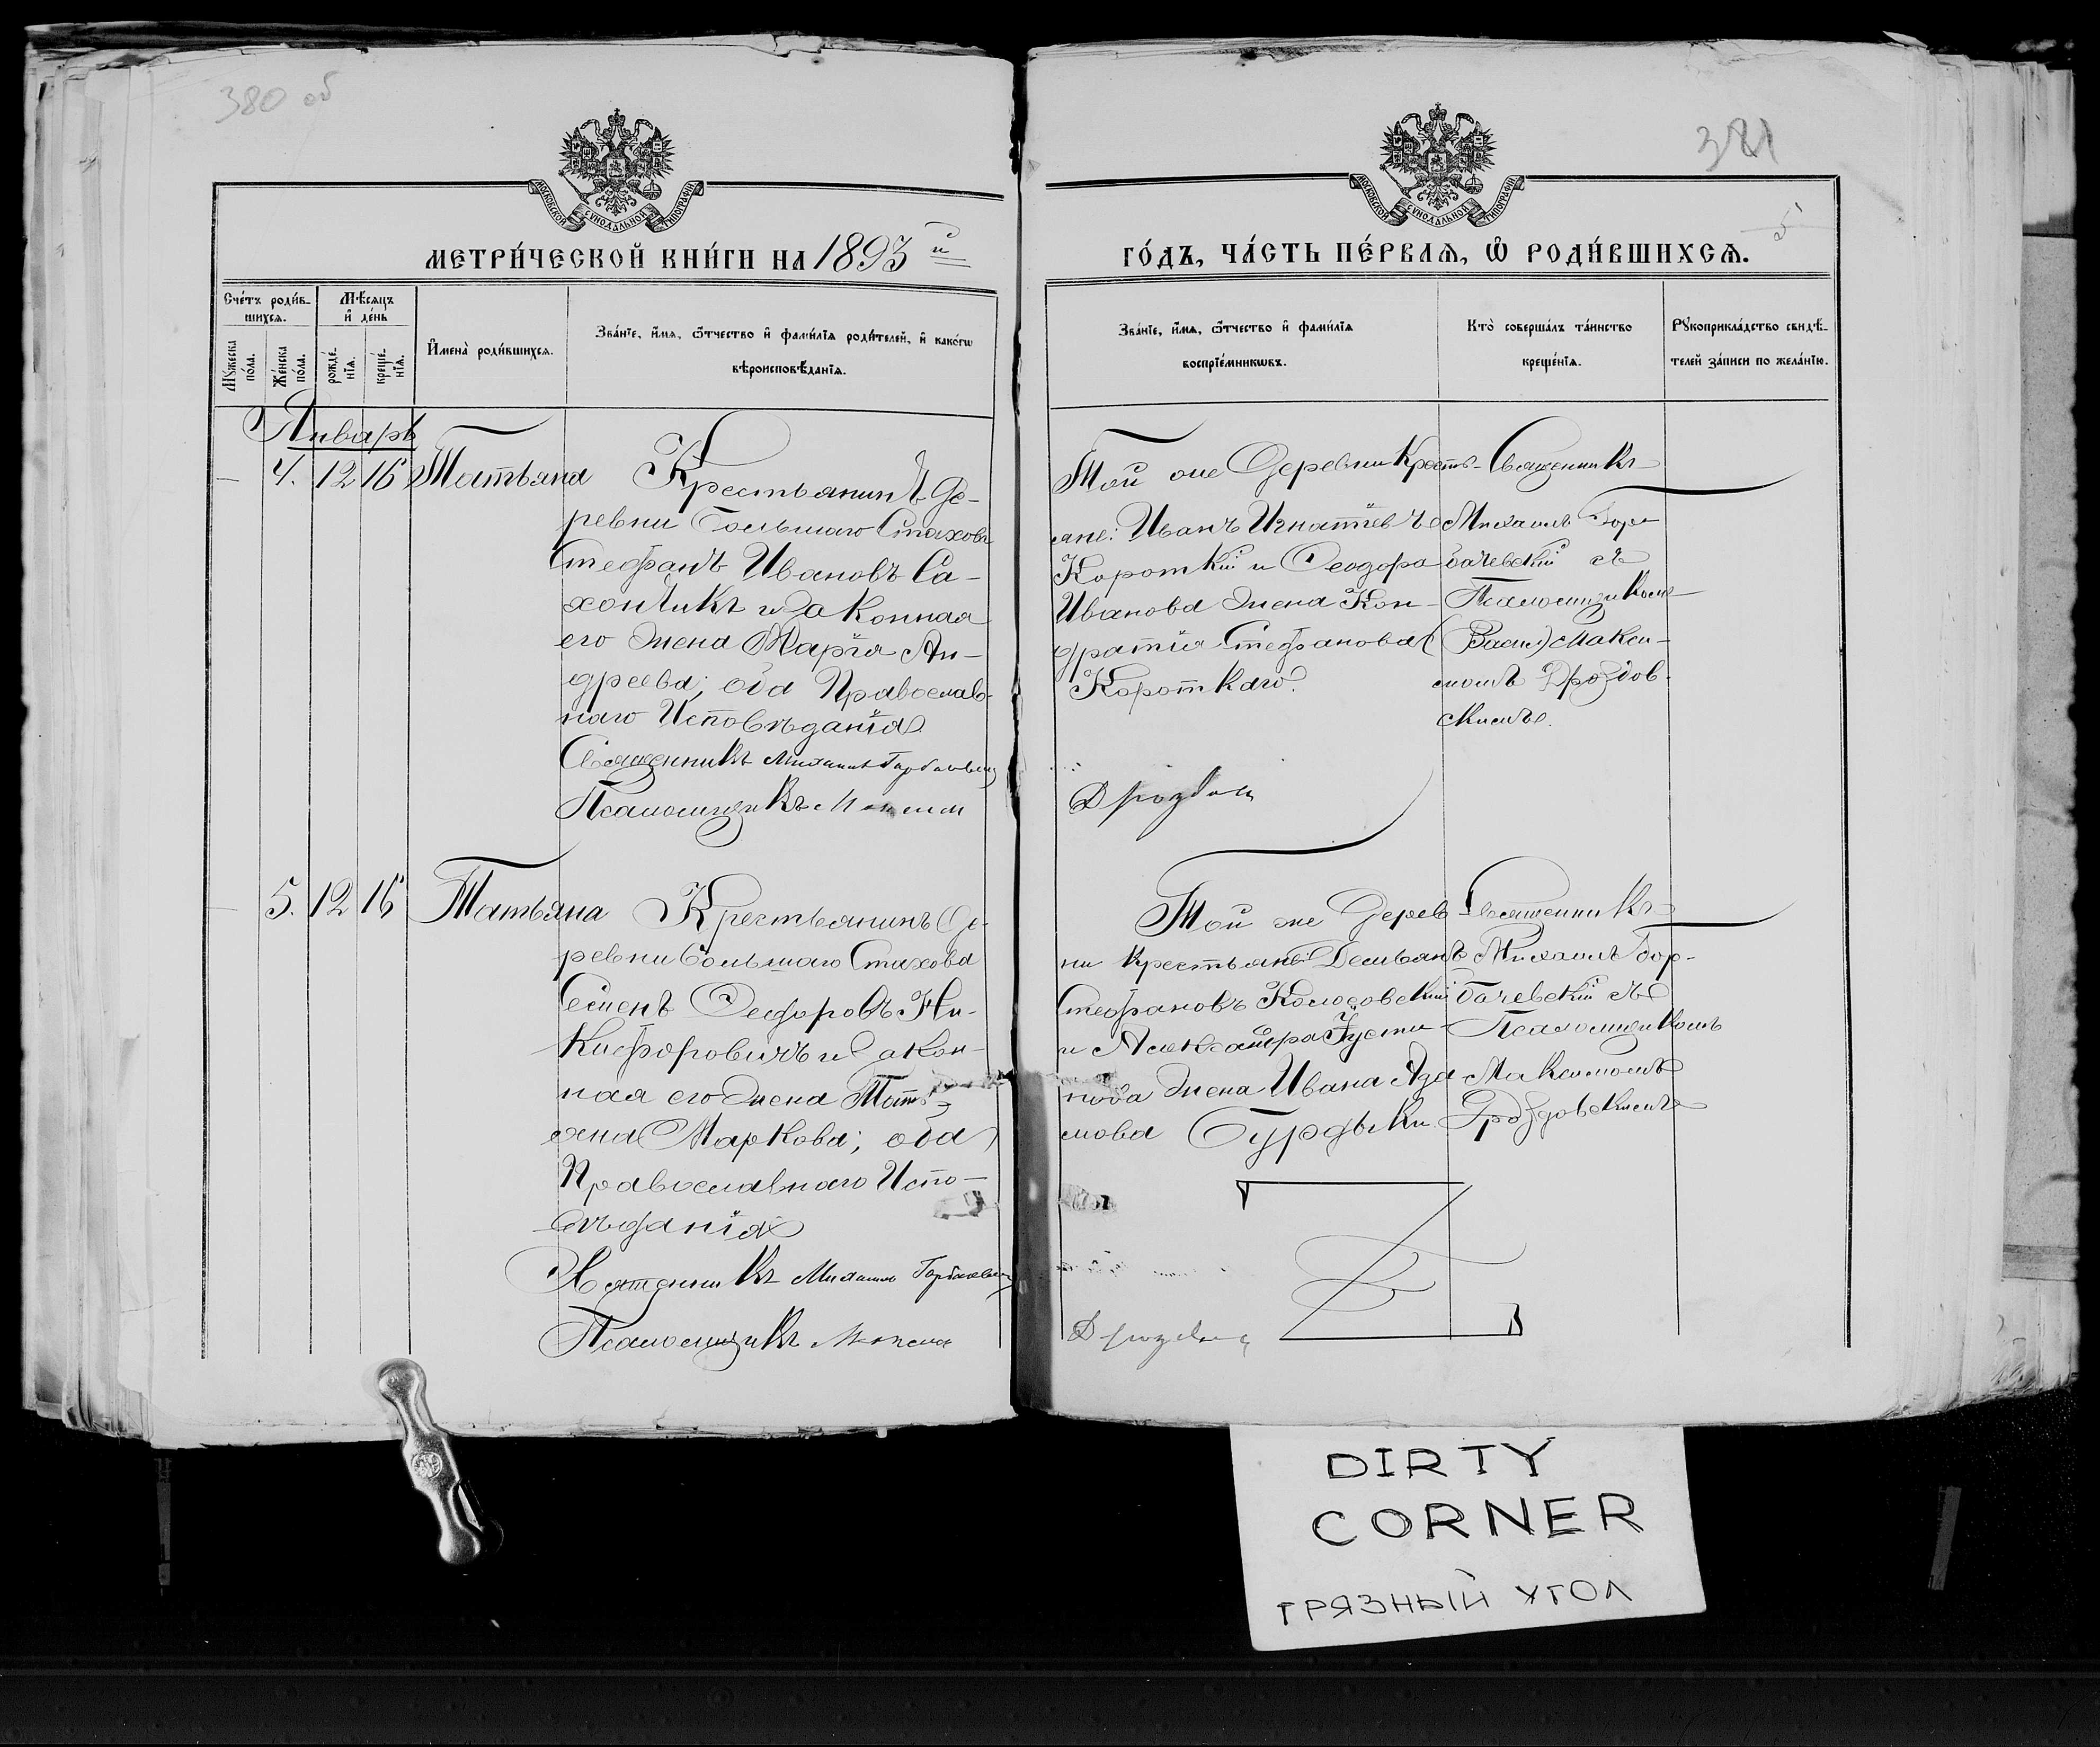 380 об
МОСКОВСКОЙ СѴНОДАЛЬНОЙ ТИПОГРАФІИ
МЕТРИ́ЧЕСКОЙ КНИ́ГИ НА 1893 й
Сче́тъ роди́в-
шихсѧ.
Мѣ́сѧцъ
и҆ де́нь
И҆мена̀ роди́вшихсѧ.
Зва́нїе, и҆́мѧ, ѻ҆́тчество и҆ фами́лїѧ роди́телей, и҆ како́гѡ
вѣроисповѣ́данїѧ.
Мꙋ́жеска
по́ла.
Же́нска
по́ла.
рожде́-
нїѧ.
креще́-
нїѧ.
Январь
— 4. 12 16 Татьяна Крестьянинъ де-
ревни Большаго Стахова
Стефанъ Ивановъ Са-
хончикъ и законная
его жена Марія Ан-
дреева; оба Православ-
наго Исповѣданія
Священникъ Михаилъ Горбачевскій
Псаломщикъ Максим
— 5. 12 16 Татьяна Крестьянинъ де-
ревни Большаго Стахова
Семенъ Ѳеодоровъ Ни-
кифоровичъ и закон-
ная его жена Тать-
яна Маркова; оба
Православнаго Испо-
вѣданія
Священникъ Михаилъ Горбачевскій
Псаломщикъ Максим
381
5
МОСКОВСКОЙ СѴНОДАЛЬНОЙ ТИПОГРАФІИ
ГО́ДЪ, ЧА́СТЬ ПЕ́РВАѦ, Ѽ РОДИ́ВШИХСѦ.
Зва́нїе, и҆́мѧ, ѻ҆́тчество и҆ фами́лїѧ
воспрїе́мникѡвъ.
Кто̀ соверша́лъ та́инство
креще́нїѧ.
Рꙋкоприкла́дство свидѣ́-
телей за́писи по жела́нїю.
Той же Деревни Кресть-
яне: Иванъ Игнатіевъ
Короткій и Ѳеодора
Иванова жена Кон-
дратія Стефанова
Короткаго.
Священникъ
Михаилъ Гор-
бачевскій съ
Псаломщикомъ
Макси-
момъ Дроздов-
скимъ.
Дрозdов
Той же Дерев-
ни Крестьяне Демьянъ
Стефановъ Колосовскій
и Александра Іусти-
нова жена Ивана Ада-
мова Бурдыки.
Священникъ
Михаилъ Гор-
бачевскій съ
Псаломщикомъ
Максимомъ
Дроздовскимъ
DIRTY
CORNER
ГРЯЗНЫЙ УГОЛ